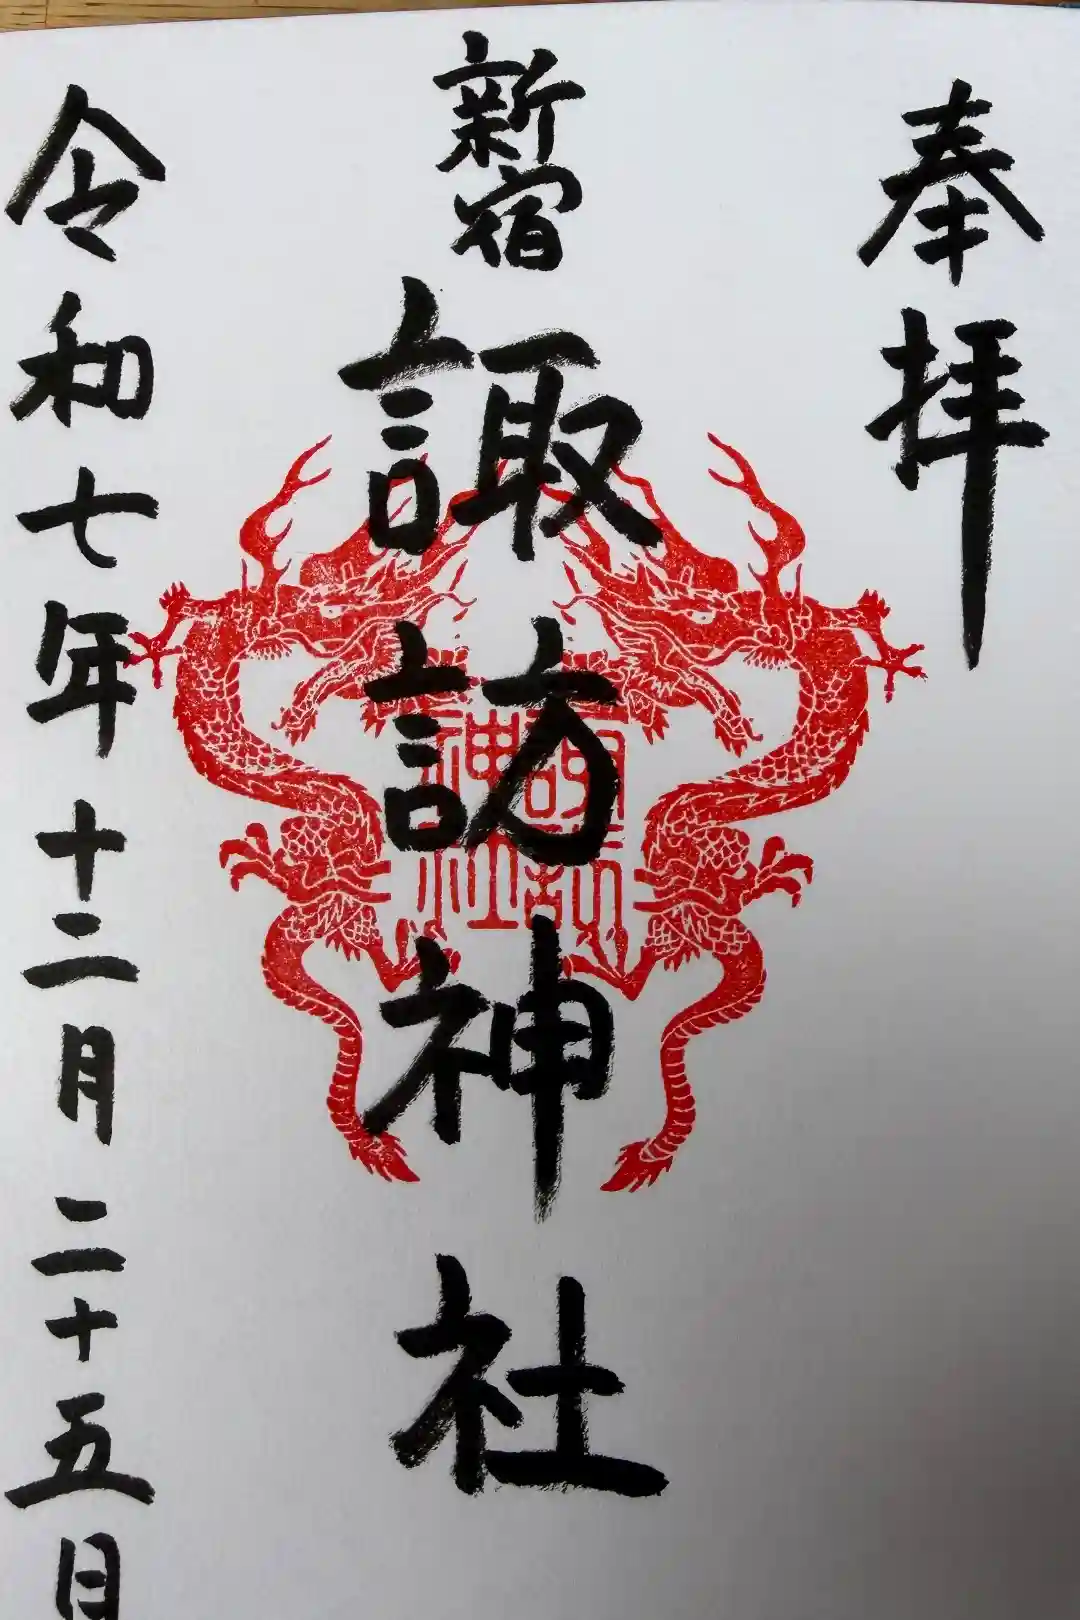 奉拝
新宿
諏訪神社
諏訪
神社
令和七年十二月二十五日